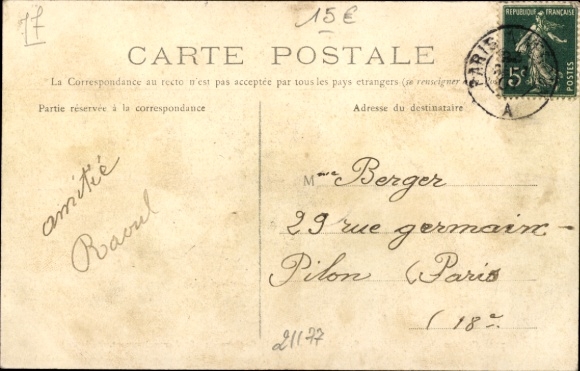 15€
CARTE POSTALE
La Correspondance au recto n'est pas acceptée par tous les pays etrangers (se renseigner
Partie réservée à la correspondance
Adresse du destinataire
RÉPUBLIQUE FRANÇAISE
5c
POSTES
PARIS
A
amitié
Raoul
Mme Berger
29 rue germain-
Pilon (Paris
(18e.
21177